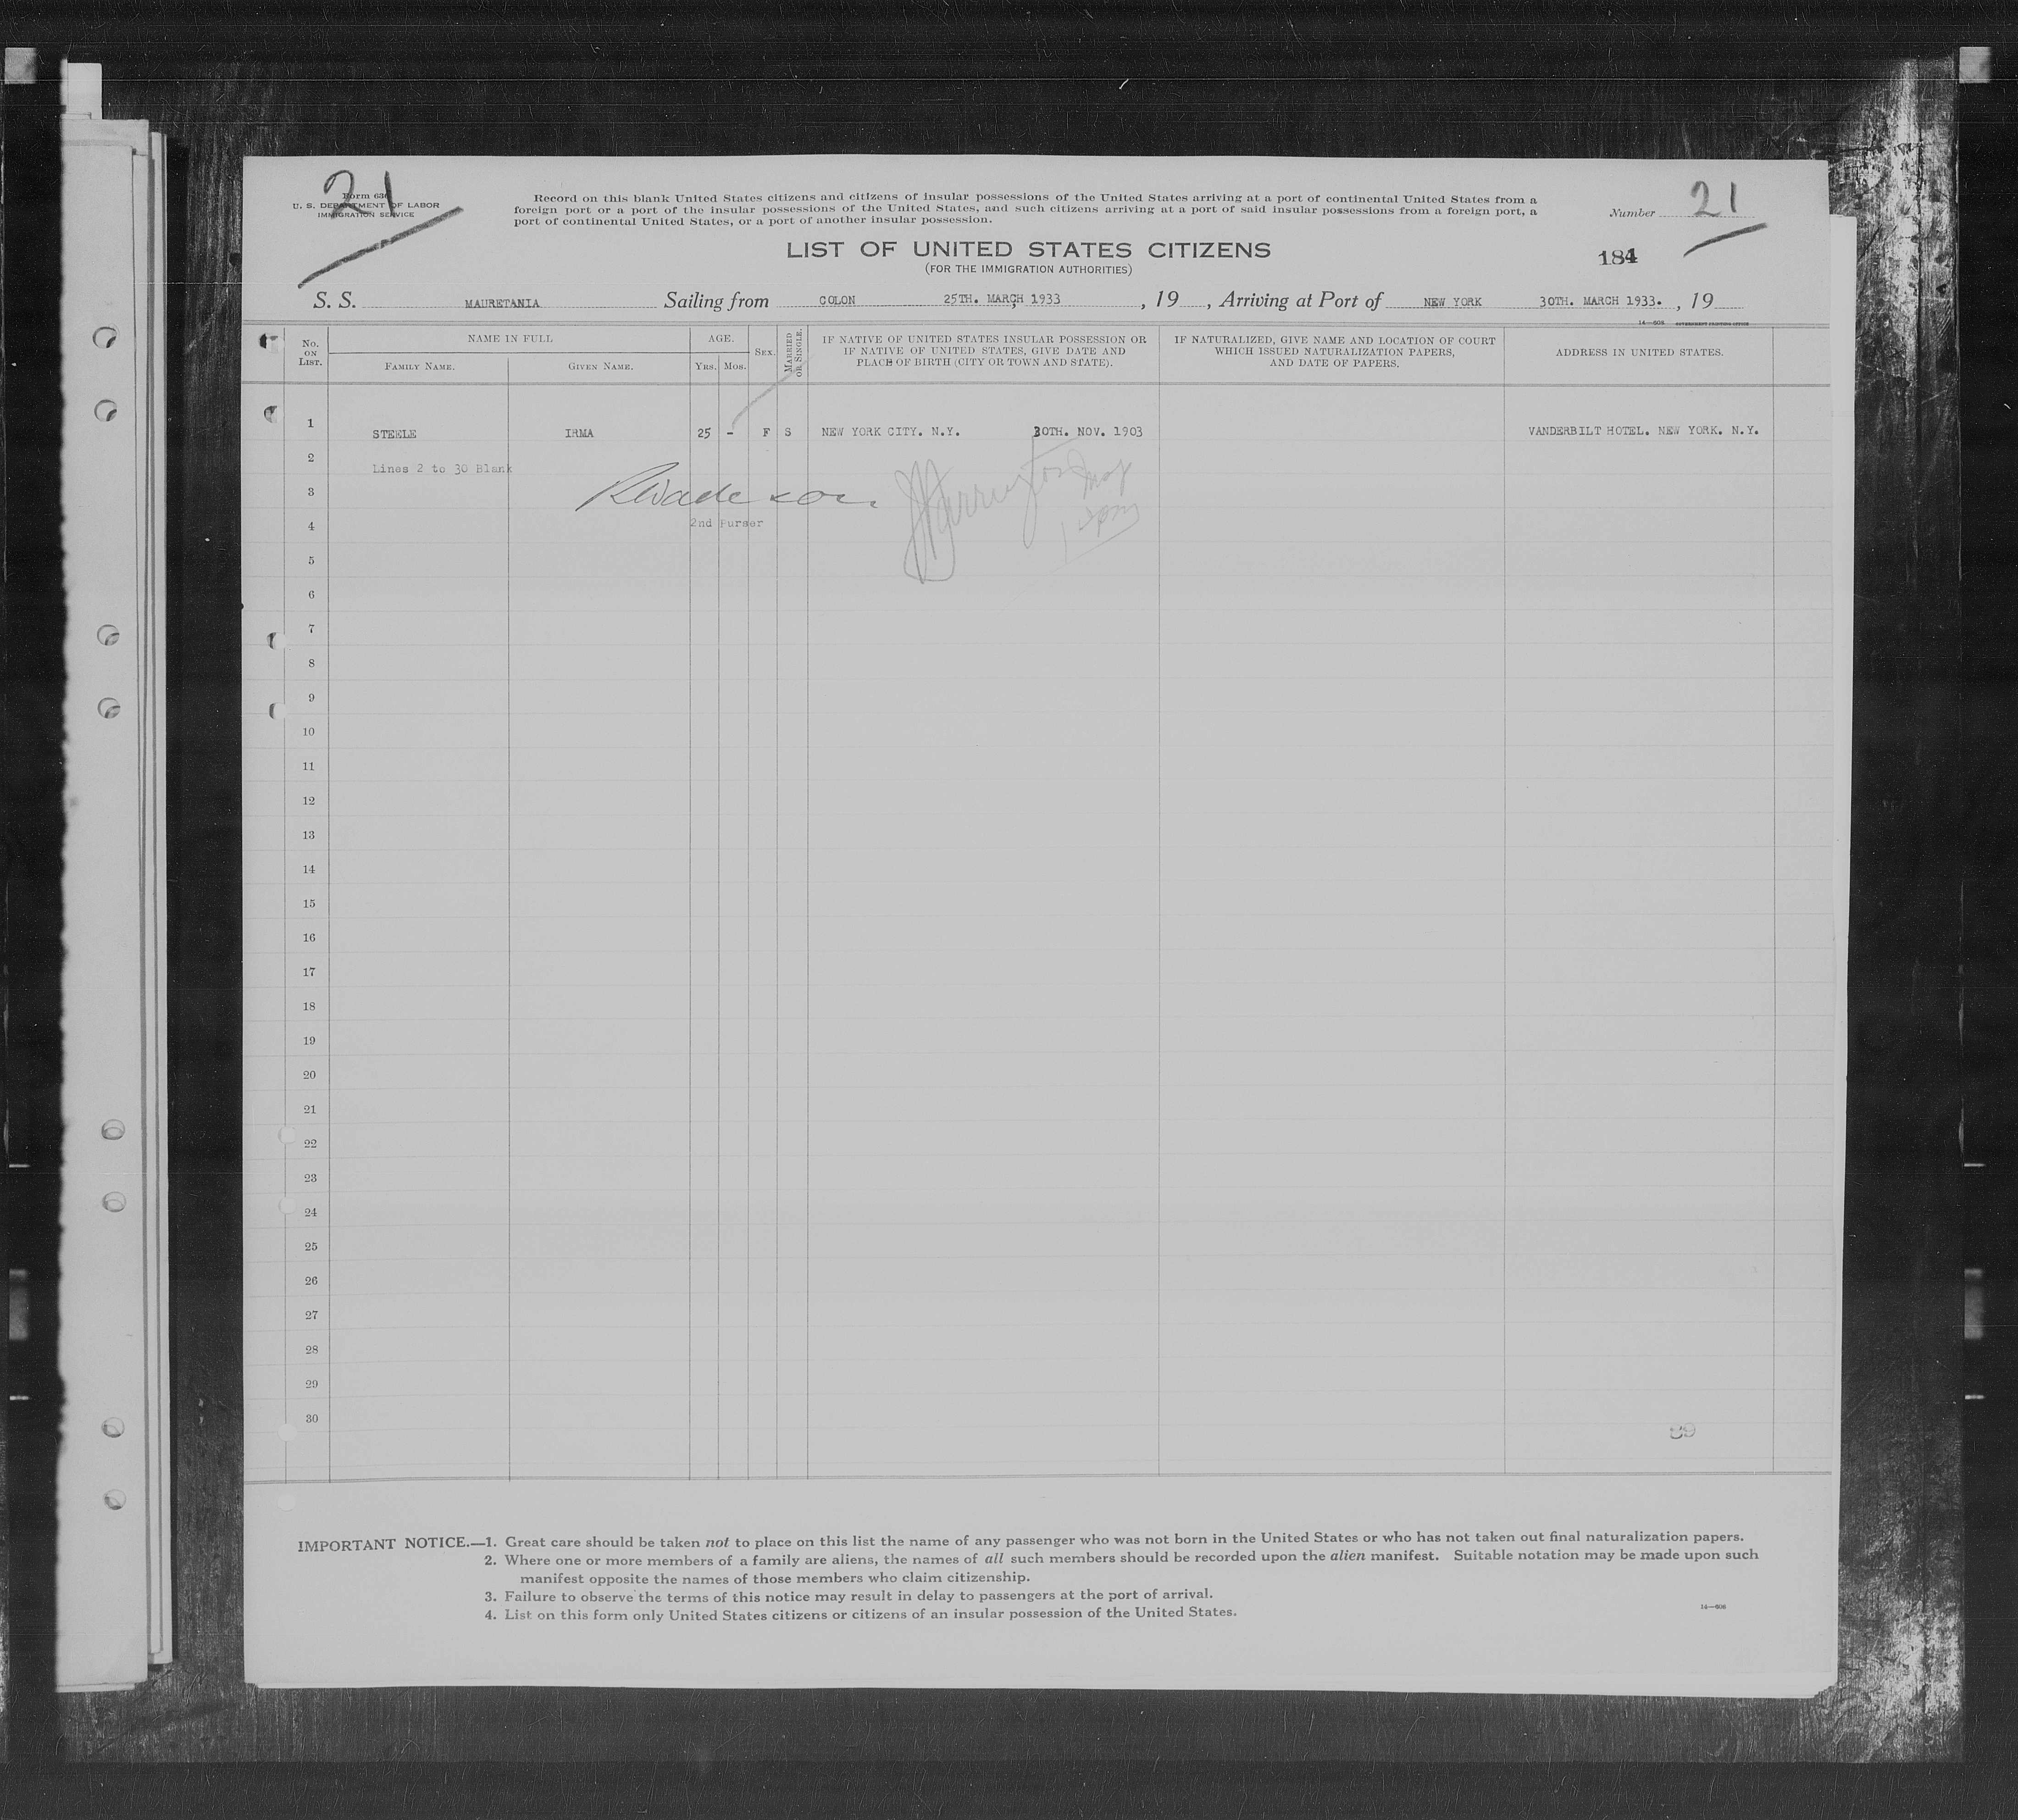 21
Form 630
U. S. DEPARTMENT OF LABOR
IMMIGRATION SERVICE
Record on this blank United States citizens and citizens of insular possessions of the United States arriving at a port of continental United States from a
foreign port or a port of the insular possessions of the United States, and such citizens arriving at a port of said insular possessions from a foreign port, a
port of continental United States, or a port of another insular possession.
Number 21
LIST OF UNITED STATES CITIZENS
(FOR THE IMMIGRATION AUTHORITIES)
184
S. S. MAURETANIA Sailing from COLON 25TH. MARCH 1933 , 19 , Arriving at Port of NEW YORK 30TH. MARCH 1933. , 19
14—608 GOVERNMENT PRINTING OFFICE
No. ON LIST. NAME IN FULL FAMILY NAME. GIVEN NAME. AGE. YRS. MOS. SEX. MARRIED OR SINGLE. IF NATIVE OF UNITED STATES INSULAR POSSESSION OR IF NATIVE OF UNITED STATES, GIVE DATE AND PLACE OF BIRTH (CITY OR TOWN AND STATE). IF NATURALIZED, GIVE NAME AND LOCATION OF COURT WHICH ISSUED NATURALIZATION PAPERS, AND DATE OF PAPERS. ADDRESS IN UNITED STATES.
1 STEELE IRMA 25 - F S NEW YORK CITY. N.Y. 30TH. NOV. 1903 VANDERBILT HOTEL. NEW YORK. N.Y.
2 Lines 2 to 30 Blank
3
4 2nd Purser
5
6
7
8
9
10
11
12
13
14
15
16
17
18
19
20
21
22
23
24
25
26
27
28
29
30
89
IMPORTANT NOTICE.—1. Great care should be taken not to place on this list the name of any passenger who was not born in the United States or who has not taken out final naturalization papers.
2. Where one or more members of a family are aliens, the names of all such members should be recorded upon the alien manifest. Suitable notation may be made upon such
manifest opposite the names of those members who claim citizenship.
3. Failure to observe the terms of this notice may result in delay to passengers at the port of arrival.
4. List on this form only United States citizens or citizens of an insular possession of the United States.
14—608